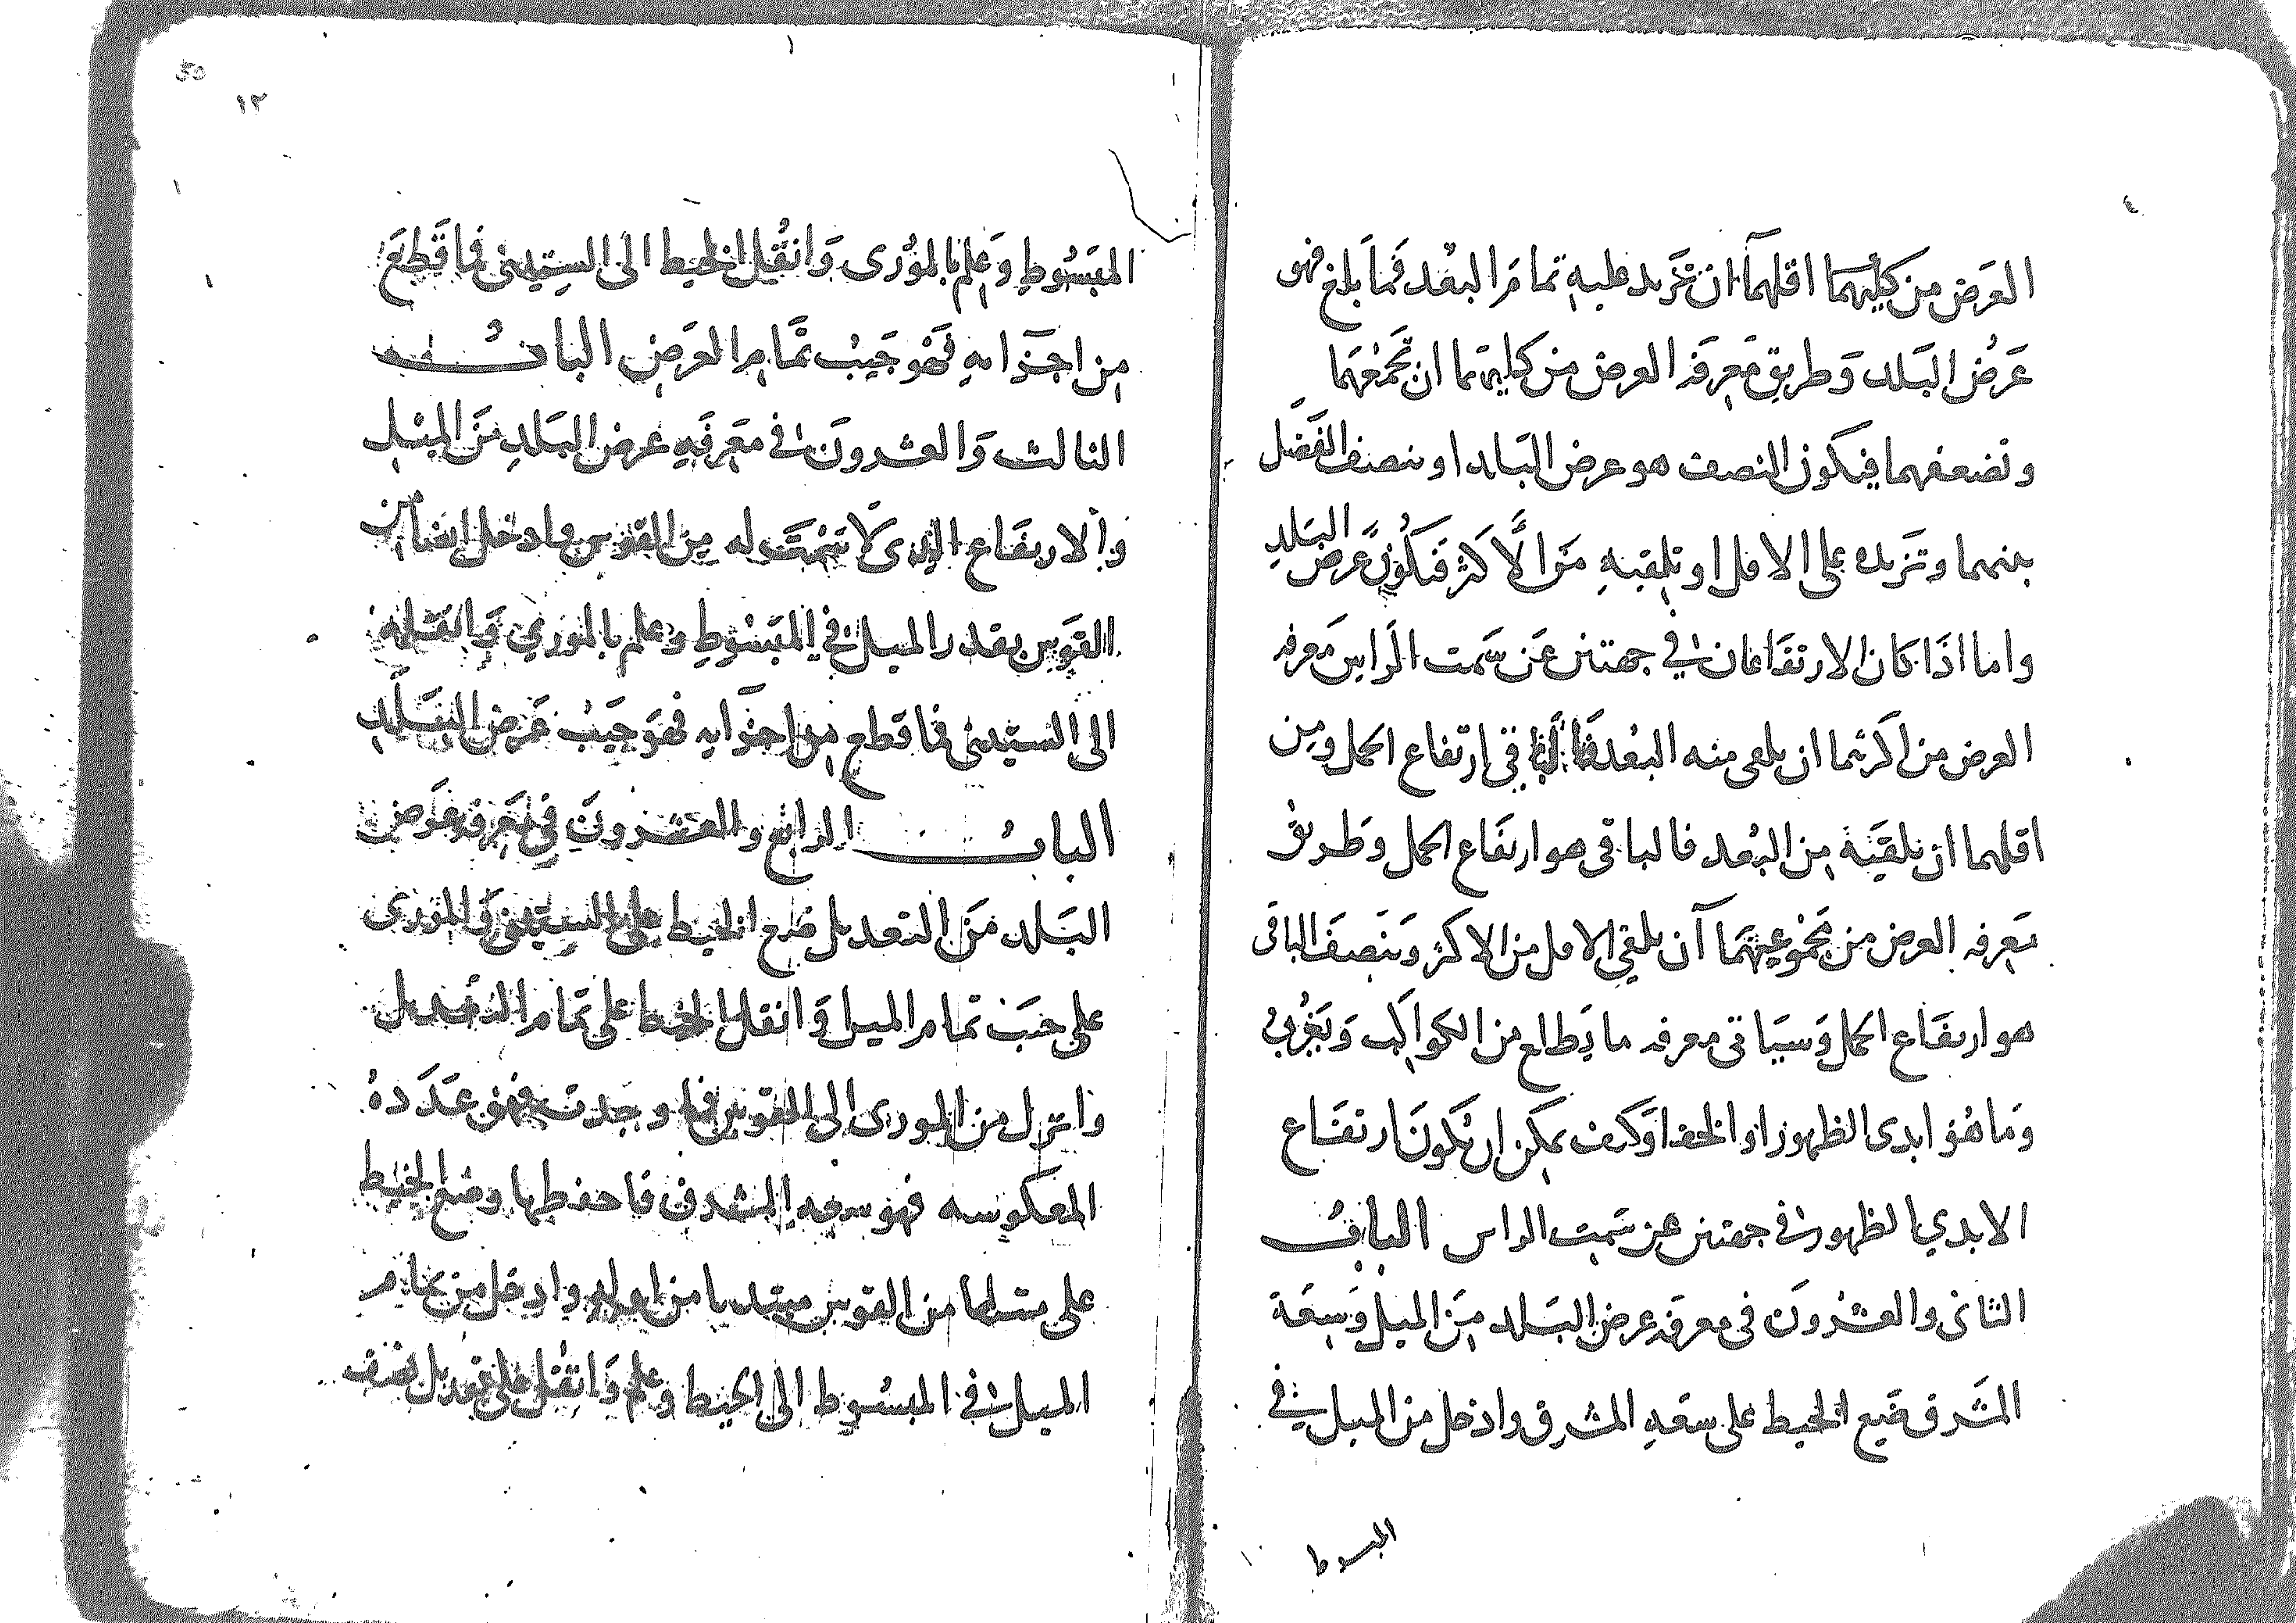 العرض من كليهما اقلهما ان تزيد عليه تمام البعد فما بلغ فهو
عرض البلد وطريق معرفه العرض من كليهما ان تجمعهما
وتضعفهما فيكون النصف هو عرض البلد او بنصف الفضل
بينهما وتزيده على الاقل او تلقيه من الاكثر فيكون عرض البلد
واما اذا كان الارتفاعان في جهتين عن سمت الراس معرفه
العرض من اكثرهما ان يلقى منه البعد فالباقى ارتفاع الحمل ومن
اقلهما ان يلقيه من البعد فالباقى هو ارتفاع الحمل وطريق
معرفه العرض من مجموعهما ان يلقي الاقل من الاكثر وينصف الباقى
هو ارتفاع الحمل وسياتى معرفه ما يطلع من الكواكب ويغرب
وما هو ابدى الظهور او الخفا وكيف يمكن ان يكون ارتفاع
الابدي الظهور في جهتين عن سمت الراس الباب
الثانى والعشرون فى معرفة عرض البلد من الميل وسعة
المشرق ضع الخيط على سعة المشرق وادخل من الميل في
المبسوط
١٢
المبسوط وعلم بالمورى وانقل الخيط الى الستينى فما قطع
من اجزايه فهو جيب تمام العرض الباب
الثالث والعشرون في معرفه عرض البلد من الميل
والارتفاع الذى لا سمت له من القوس وادخل ايضا من
القوس بقدر الميل في المبسوط وعلم بالمورى وانقله
الى الستينى فما قطع من اجزايه فهو جيب عرض البلد
الباب الرابع والعشرون في معرفة عرض
البلد من التعديل ضع الخيط على الستينى والمورى
على جيب تمام الميل وانقل الخيط على تمام التعديل
وانزل من المورى الى القوس فما وجدت فهو عدده
المعكوسه فهو سعه المشرق فاحفظها وضع الخيط
على مثلها من القوس مبتديا من اوله وادخل من تمام
الميل في المبسوط الى الخيط وعلم وانقل على تعديل نصف